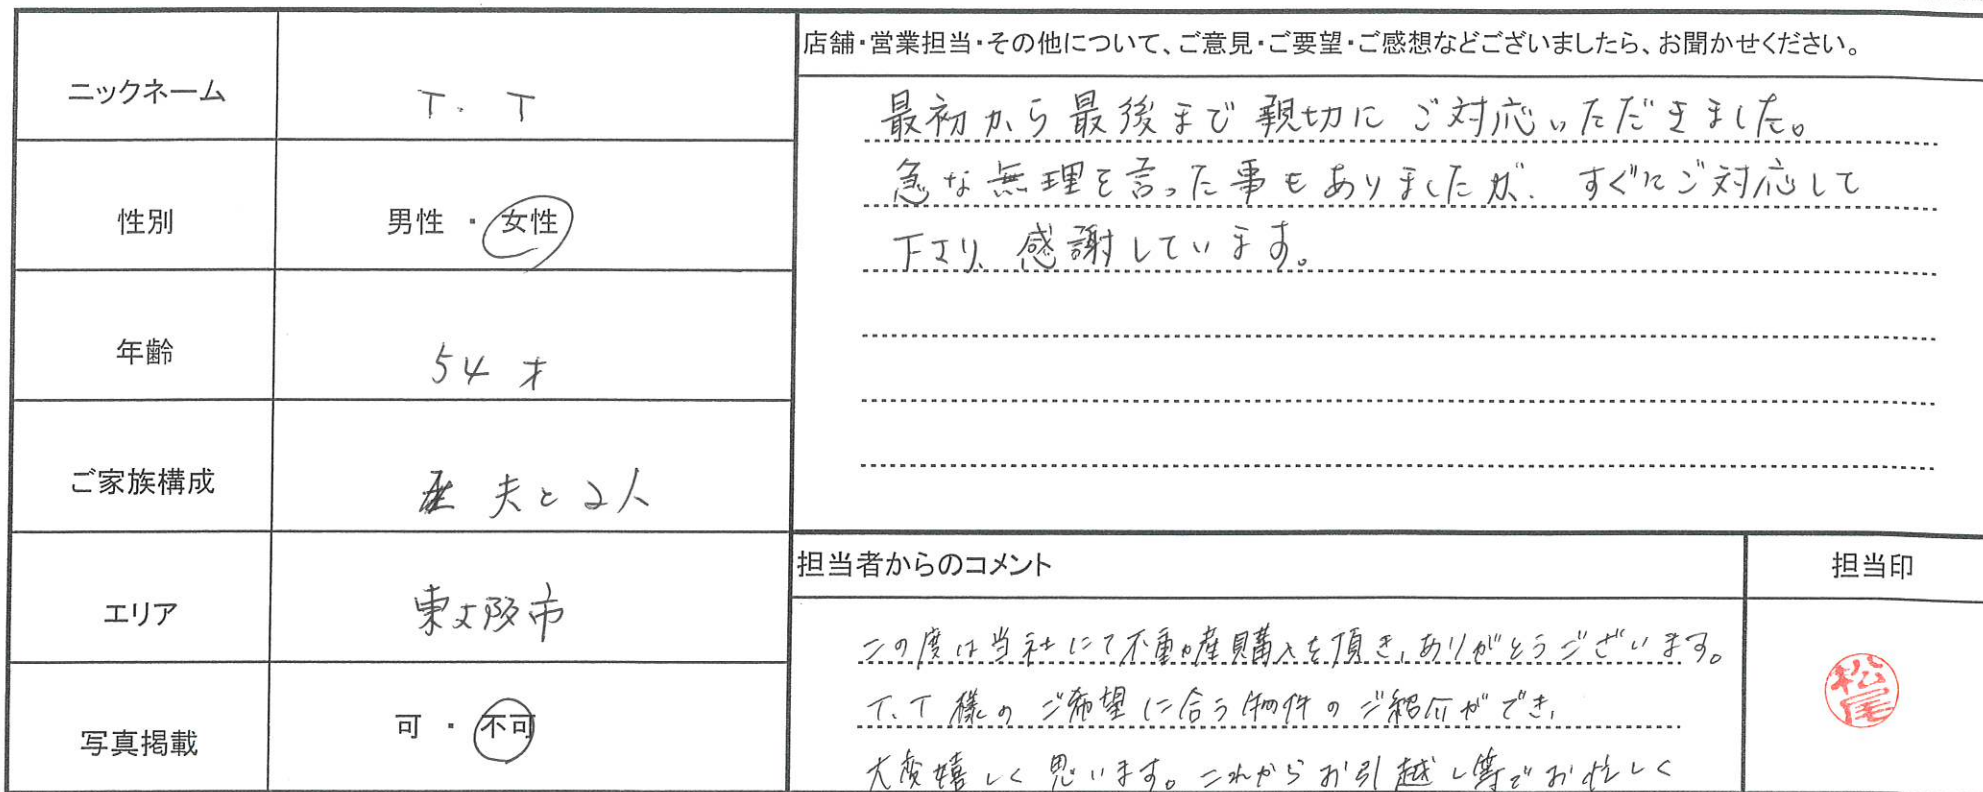 ニックネーム
T.T
性別
男性・女性
年齢
54才
ご家族構成
夫と2人
エリア
東大阪市
写真掲載
可・不可
店舗・営業担当・その他について、ご意見・ご要望・ご感想などございましたら、お聞かせください。
最初から最後まで親切にご対応いただきました。
急な無理を言った事もありましたが、すぐにご対応して
下さり、感謝しています。
担当者からのコメント
この度は当社にて不動産購入を頂き、ありがとうございます。
T.T様のご希望に合う物件のご紹介ができ、
大変嬉しく思います。これからお引越し等でお忙しく
担当印
松尾